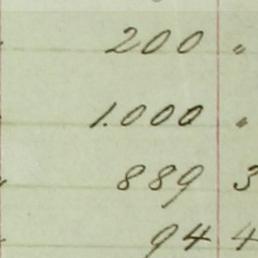 " 200 "
" 1.000 "
" 889 3
" 94 4